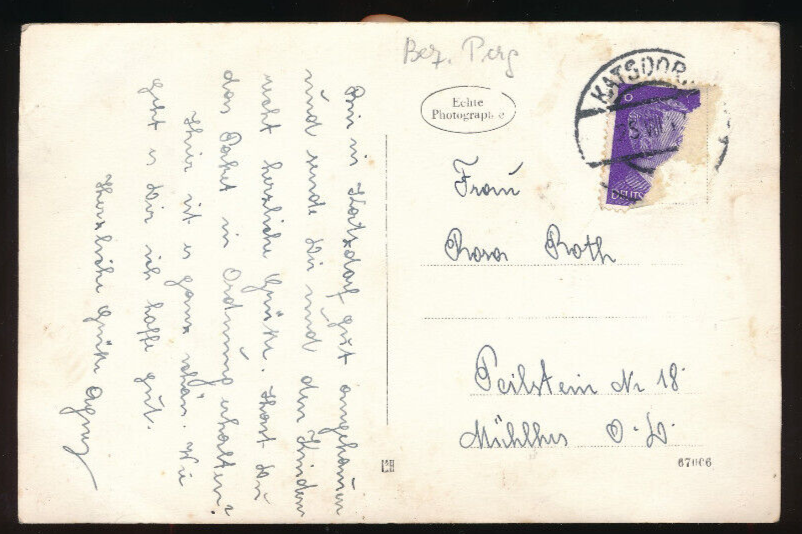 Bez. Perg
Echte
Photographie
KATSDOR
DEUTS
Frau
Rosa Roth
Peilstein Nr 18
Mühlkr O. D.
67006
Bin in Katsdorf gut angekommen
und sende Dir und den Kindern
recht herzliche Grüße. Hast Du
das Paket in Ordnung erhalten?
Hier ist es ganz schön. Wie
geht es Dir ich hoffe gut.
Herzliche Grüße Agnes